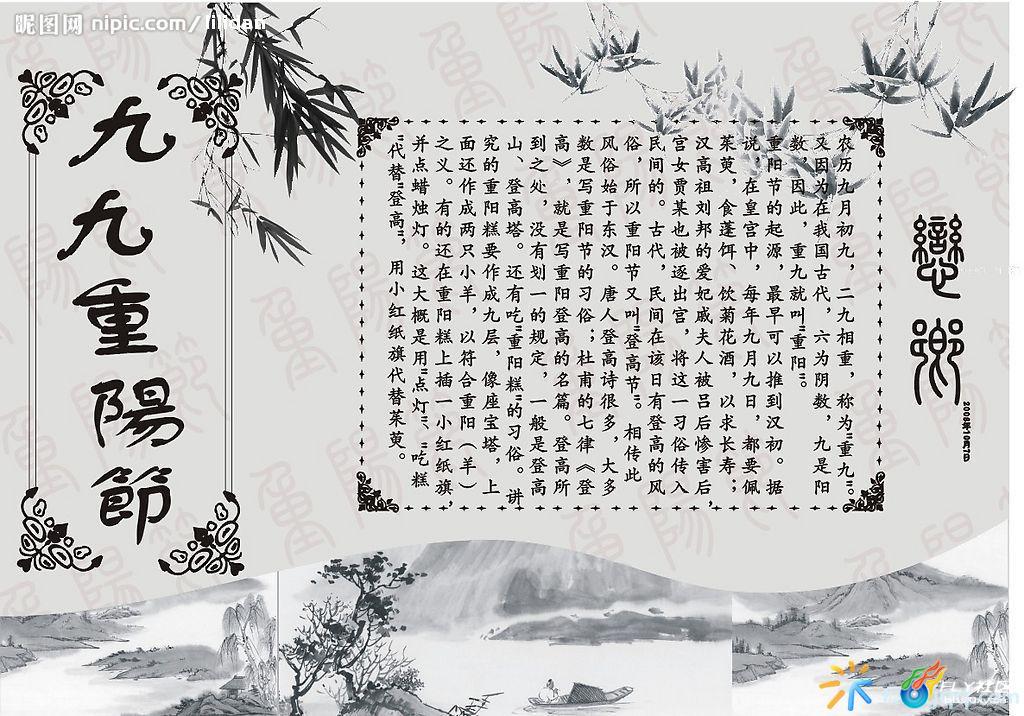 昵图网 nipic.com/lilidan
戀鄉
2008年10月7日
农历九月初九，二九相重，称为"重九"。
又因为在我国古代，六为阴数，九是阳
数，因此，重九就叫"重阳"。
重阳节的起源，最早可以推到汉初。据
说，在皇宫中，每年九月九日，都要佩
茱萸，食蓬饵、饮菊花酒，以求长寿；
汉高祖刘邦的爱妃戚夫人被吕后惨害后，
宫女贾某也被逐出宫，将这一习俗传入
民间的。古代，民间在该日有登高的风
俗，所以重阳节又叫"登高节"。相传此
风俗始于东汉。唐人登高诗很多，大多
数是写重阳节的习俗；杜甫的七律《登
高》，就是写重阳登高的名篇。登高所
到之处，没有划一的规定，一般是登高
山、登高塔。还有吃"重阳糕"的习俗。讲
究的重阳糕要作成九层，像座宝塔，上
面还作成两只小羊，以符合重阳（羊）
之义。有的还在重阳糕上插一小红纸旗，
并点蜡烛灯。这大概是用"点灯"、"吃糕
"代替"登高"，用小红纸旗代替茱萸。
九九重陽節
FLY社区